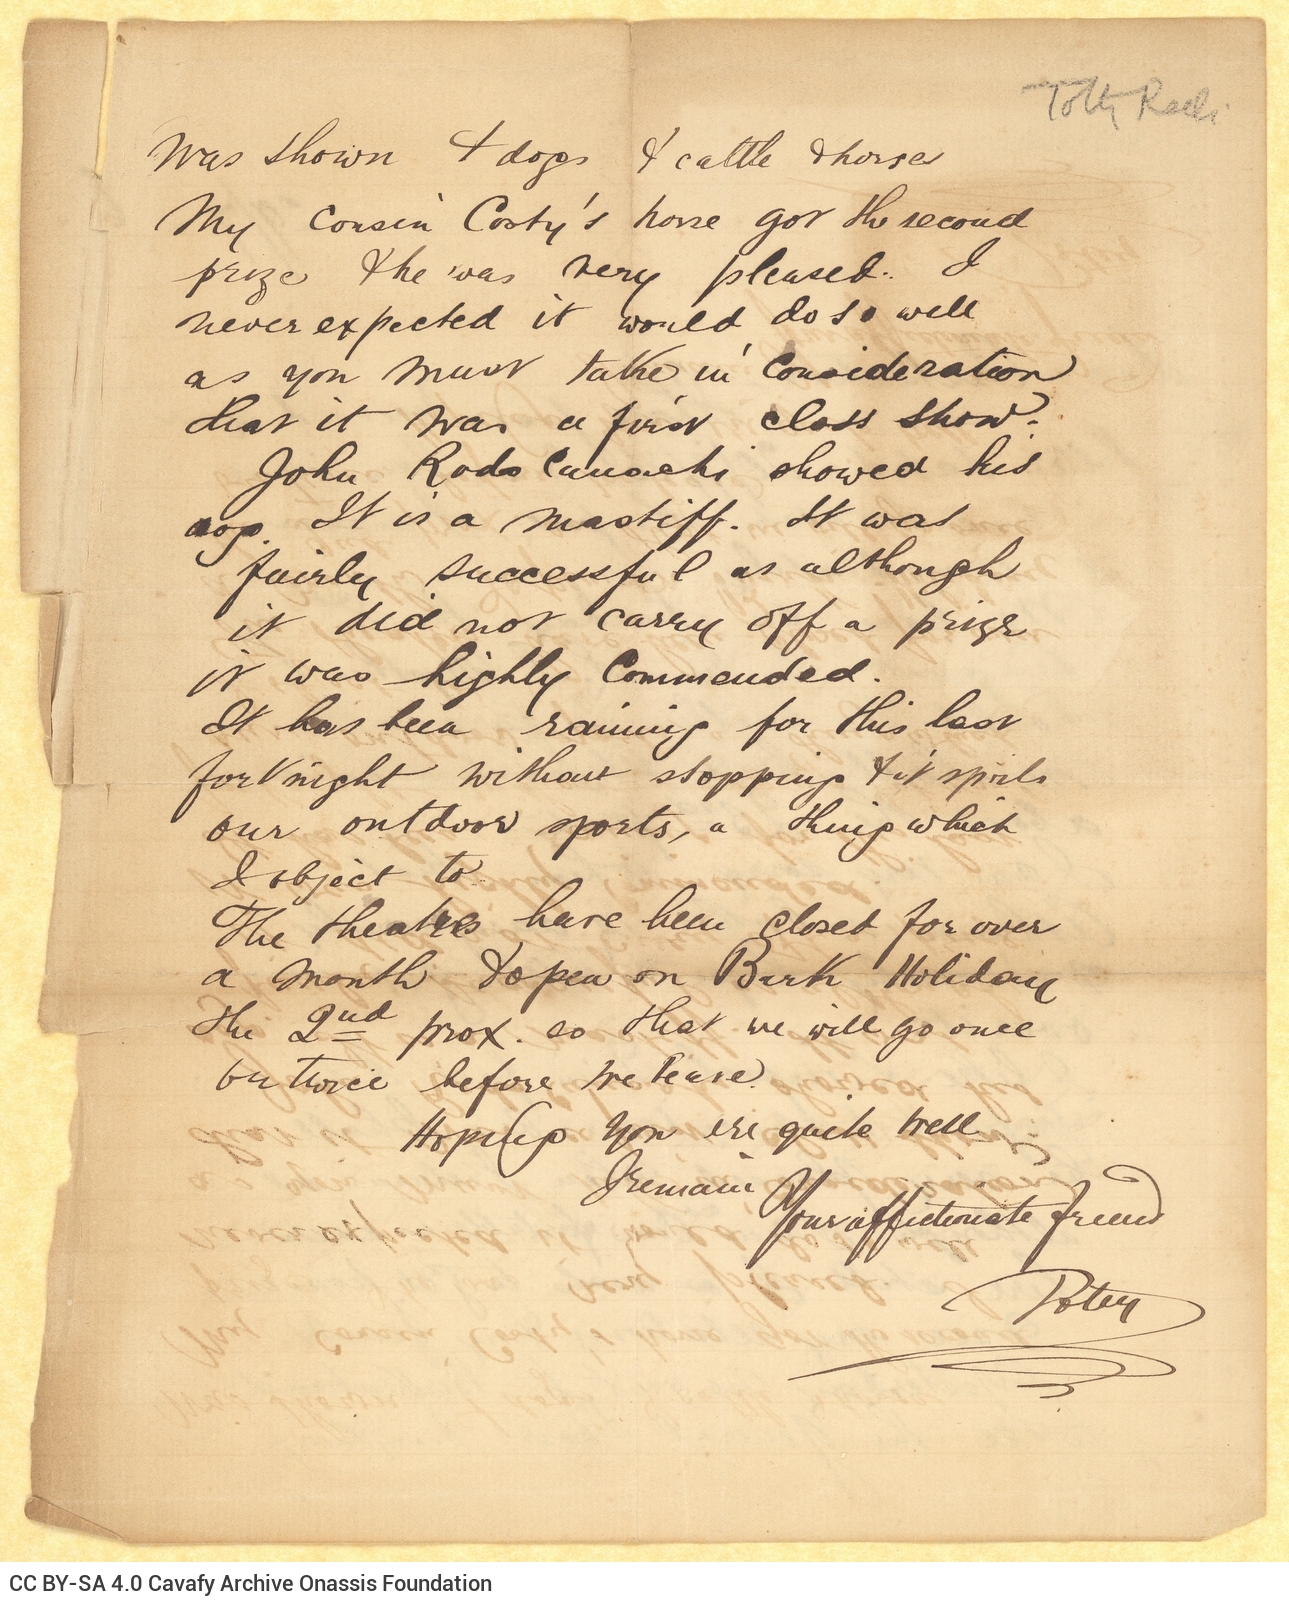 Toby Ralli
Was shown & dogs & cattle & horses
My cousin Costy's horse got the second
prize & he was very pleased. I
never expected it would do so well
as you must take in consideration
that it was a first class show.
John Rodocanachi showed his
dog. It is a mastiff. It was
fairly successful as although
it did not carry off a prize
it was highly commended.
It has been raining for this last
fortnight without stopping & it spoils
our outdoor sports, a thing which
I object to
The theatres have been closed for over
a month & open on Bank Holiday
the 2nd prox. so that we will go once
or twice before we leave.
Hoping you are quite well
I remain
Your affectionate friend
CC BY-SA 4.0 Cavafy Archive Onassis Foundation